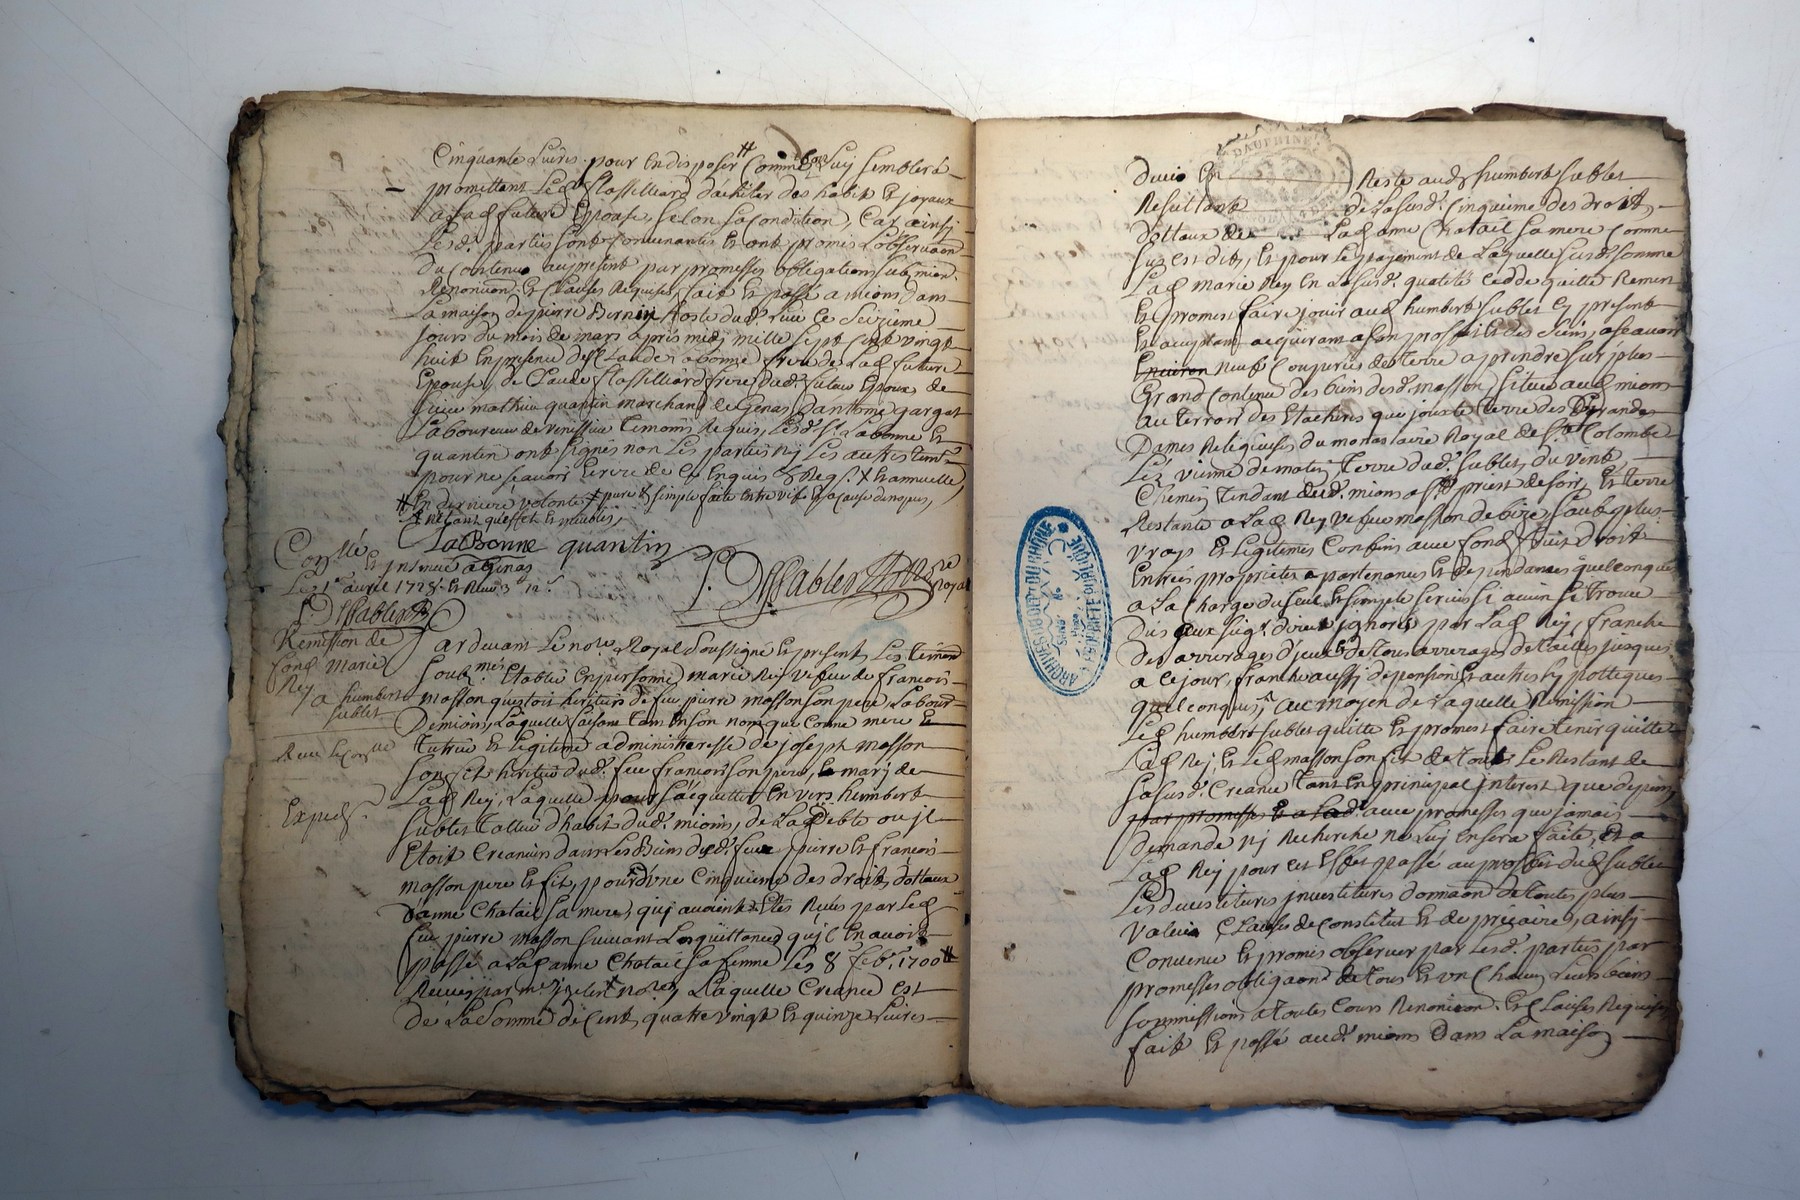 Cinquante Livres pour En disposer # Comme bon Luy semblera
promettant Led flassilliard d'achêter des habit & joyaux
a Lad future Epouse, selon sa Condition, Car ainsi
Lesd. parties sont Convenantes Et ont promis L'observaon
du Contenu au present par promesses obligations submion
Renonciaon Et Clauses Requises, fait Et passé a mions dans
La maison de pierre Bernin hoste dud. Lieu Ce Seizieme
jours du mois de mars apres midy mille sept Cent vingt
huit En presence de Claude Labonne frere de Lad future
Epouse, de Claude flassilliard frere dud. futur Epoux de
sieur mathieu quantin marchand de Genas d'antoine gargat
Laboureur de venissieu Temoins Requis, Lesd. Srs Labonne Et
quantin ont signés non Les parties ny Les autres tem.
pour ne sçavoir Ecrire de Ce Enquis & Req. X Et annuelle
# En derniere volonté X pure & simple faite Entre vifs Et a Cause de nopces,
LaBonne quantin
Conllé Et Insinué a Genas
Le 1er avril 1728. Et Receu 3 # 12 s.
P. DesSablers Nore Royal
Remission de
fond Marie
Rey
a humbert
sublet
Exped.
Pardevant Le nore Royal soussigné Et present Les Temoins
soub.nés Etablie En personne marie Rey vefve de francois
masson questoit heritier de feu pierre masson son pere, Labour
De mions, Laquelle faisant tant En son nom que Comme mere &
Tutrice Et Legitime administeresse de joseph masson
son fils heritier dud. feu francois son pere, Et mary de
Lad Rey, Laquelle pour s'acquitter En vers humbert
sublet Tallieur d'habit dud. mions, de La Debte ou jl
Etoit Creancier dans Les Biens desd. feux pierre Et francois
masson pere Et fils, pour d'une Cinquieme des droits dottaux
d'anne Chatail sa mere, qui avoient Etés Reçus par Led
feu pierre masson suivant Les quittances qu'jl En avoit
passé a Lad anne Chatail sa femme Les 8 febr. 1700 #
Laquelle Creance est
de La Somme de Cent quatre vingt Et quinze Livres
Reste aud humbert sublet
Resultant de La susd. Cinquieme des droits
dottaux de Lad anne Chatail sa mere Comme
sus est dit, Et pour Le payement de Laquelle susd. somme
Lad marie Rey En La susd. qualité Cedde quitte Remet
Et promet faire jouir aud humbert sublet Cy present
Et acceptant acquerant a son proffit Et des siens, asçavoir
Environ neuf Couperées de Terre a prendre sur plus
Grand Contenu des biens desd. masson, situées aud mions
au Terroir des Etachins que jouxte Terre des Grandes
Dames Religieuses du monastaire Royal de Ste Colombe
Léz vienne de matin, Terre dud. sublet du vent,
Chemin Tendant dud. mions a St priest de soir, Et terre
Restante a Lad Rey vefve masson de bize, sauf plus
vrays Et Legitimes Confins avec fond, fruit droits
Entrées proprietés apartenances Et dependances quelconques
a La Charge du seul Et simple servis si aucun se trouve
Dus aux seigr. direct jgnorés par Lad Rey, franche
des arrerages d'jceux Et de Tous arrerages de Tailles jusques
a Ce jour, franche aussi de pensions Et autres hypotteques
quelconques, au moyen de Laquelle Remission
Led humbert sublet quitte Et promet faire Tenir quitte
Lad Rey, Et Led masson son fils de Tout Le Restant de
sa susd. Creance Tant En principal jnterest que depens
par promesses Et a Lad. avec promesses que jamais
demande ny Recherche ne Luy En sera faite, Et a
Lad Rey pour Cet Effet passé au proffit dud sublet
Les devestitures jnvestitures donnaon de Toutes plus
value Clauses de Constitut Et de precaire, ainsi
Convenu Et promis observer par Lesd. parties par
promesses obligaons de Tous Et un Chacun Leurs biens
soumissions a Toutes Cours Renonciaon Et Clauses Requises
fait Et passé aud. mions Dans La maison
DAUPHINE
ARCHIVES DU DEP. DU RHONE